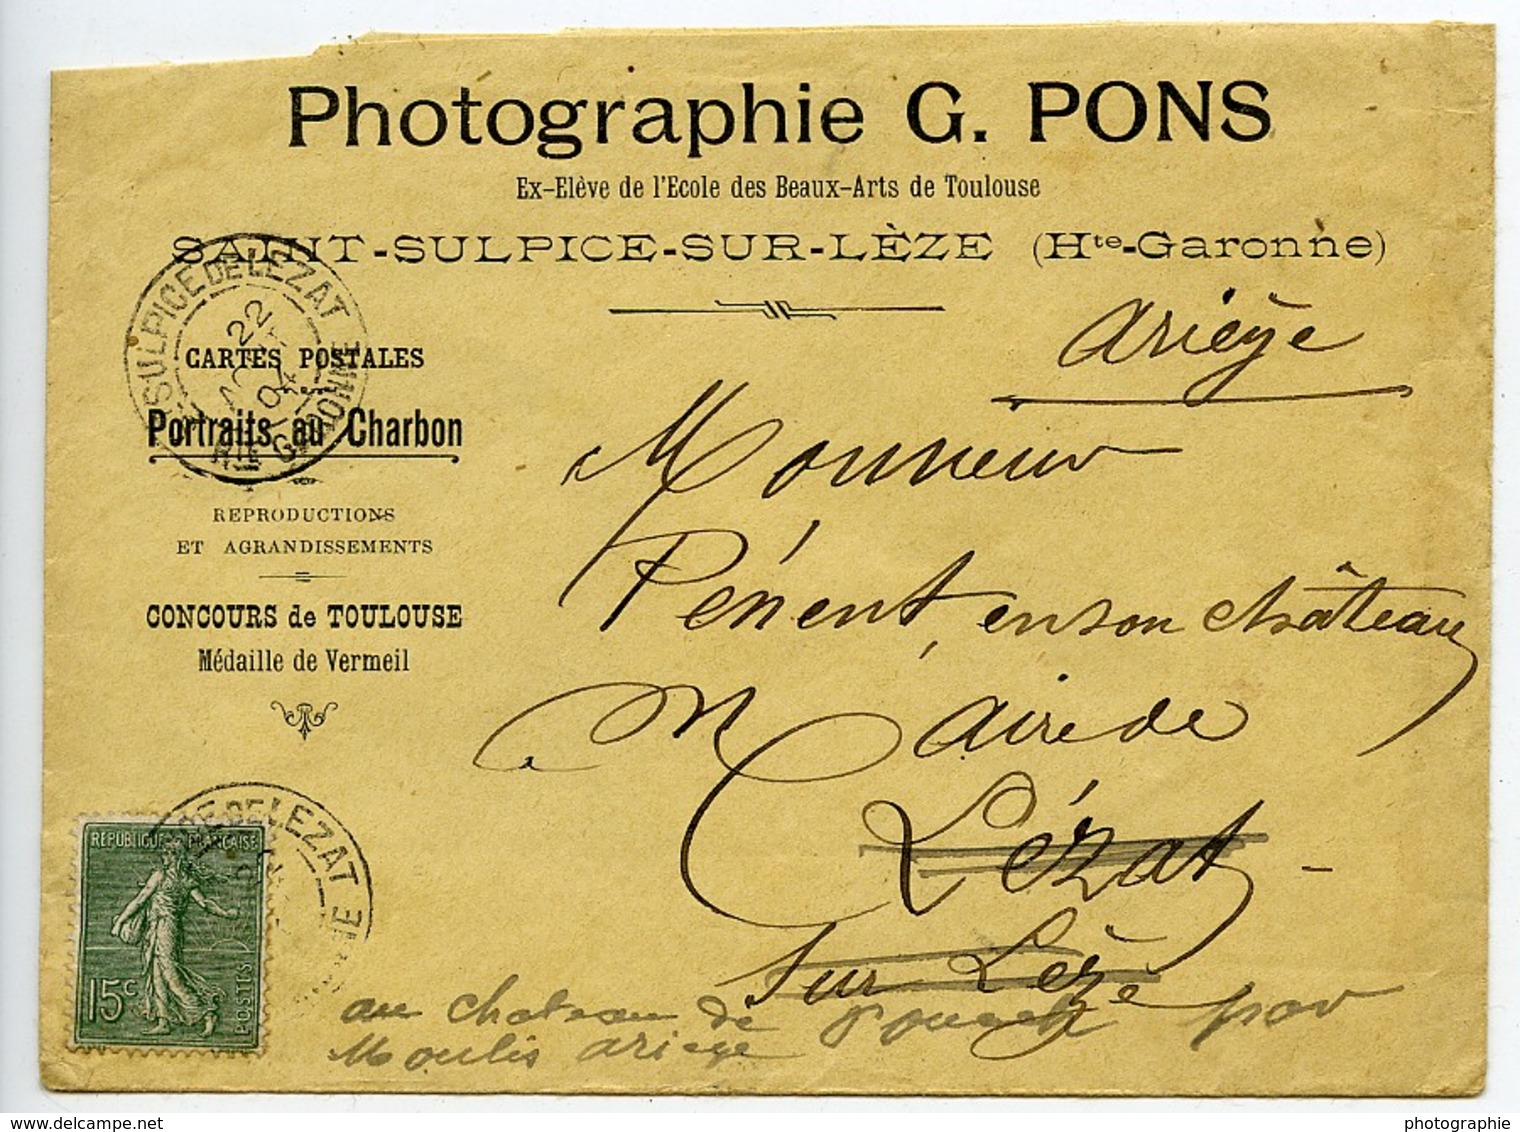 Photographie G. PONS
Ex-Elève de l'Ecole des Beaux-Arts de Toulouse
SAINT-SULPICE-SUR-LÈZE (Hte-Garonne)
Ariège
SULPICE DE LEZAT
22
04
GARONNE
CARTES POSTALES
Portraits au Charbon
REPRODUCTIONS
ET AGRANDISSEMENTS
CONCOURS de TOULOUSE
Médaille de Vermeil
Monsieur
Pénent, en son château
Maire de
Lézat -
sur Lèze
DE LEZAT
REPUBLIQUE FRANÇAISE
15c
POSTES
au chateau de par
Moulis ariege
photographie